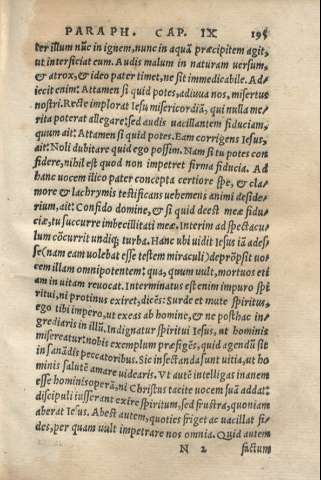 PARAPH. CAP. IX 195
ter illum nūc in ignem, nunc in aquā præcipitem agit,
ut interficiat eum. Audis malum in naturam uersum,
& atrox, & ideo pater timet, ne sit immedicabile. Ad
iecit enim: Attamen si quid potes, adiuua nos, misertus
nostri. Recte implorat Iesu misericordiā, qui nulla me
rita poterat allegare: sed audis uacillantem fiduciam,
quum ait: Attamen si quid potes. Eam corrigens Iesus,
ait: Noli dubitare quid ego possim. Nam si tu potes con
fidere, nihil est quod non impetret firma fiducia. Ad
hanc uocem ilico pater concepta certiore spe, & cla
more & lachrymis testificans uehemens animi deside
rium, ait: Confido domine, & si quid deest meæ fidu
ciæ, tu succurre imbecillitati meæ. Interim ad spectacu
lum cōcurrit undiq; turba. Hanc ubi uidit Iesus iā adess
se (nam eam uolebat esse testem miraculi) depròpsit uo
cem illam omnipotentem: qua, quum uult, mortuos eti
am in uitam reuocat. Interminatus est enim impuro spi
ritui, ni protinus exiret, dicēs: Surde et mute spiritus,
ego tibi impero, ut exeas ab homine, & ne posthac in
grediaris in illū. Indignatur spiritui Iesus, ut hominis
misereatur: nobis exemplum præfigēs, quid agendū sit
in sanādis peccatoribus. Sic insectanda sunt uitia, ut ho
minis salutē amare uidearis. Vt autē intelligas inanem
esse hominis operā, ni Christus tacite uocem suā addat:
discipuli iusserant exire spiritum, sed frustra, quoniam
aberat Iesus. Abest autem, quoties friget ac uacillat fi
des, per quam uult impetrare nos omnia. Quid autem
N 2 factum